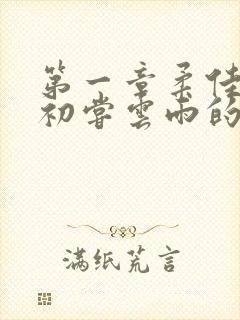 第一章柔佳
初尝雲雨的
满纸荒言